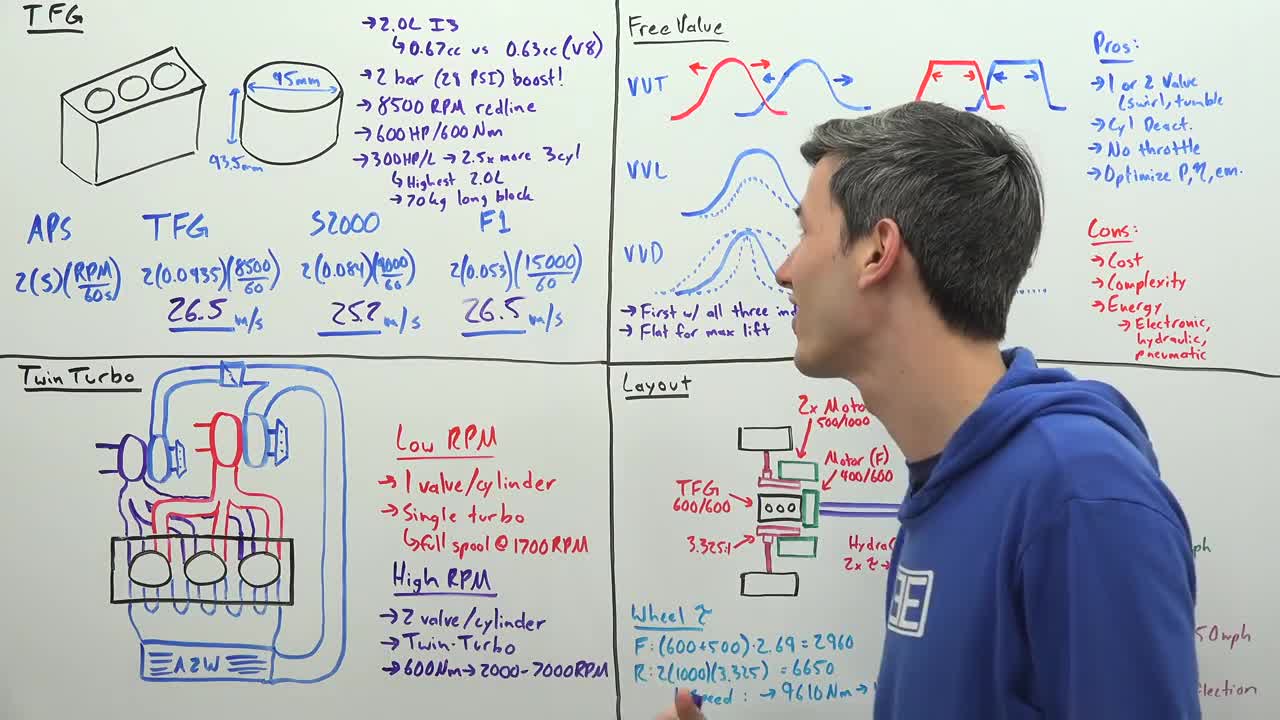 TFG
95mm
93.5mm
→2.0L I3
↳0.67cc vs 0.63cc (V8)
→2 bar (28 PSI) boost!
→8500 RPM redline
→600HP/600Nm
→300HP/L → 2.5x more 3cyl
↳Highest 2.0L
→70kg long block
APS TFG S2000 F1
2(s)(RPM/60s) 2(0.0935)(8500/60) 2(0.084)(9000/60) 2(0.053)(15000/60)
26.5 m/s 25.2 m/s 26.5 m/s
Free Valve
VVT
VVL
VVD
→First w/ all three ind
→Flat for max lift
Pros:
→1 or 2 Valve
(swirl, tumble
→Cyl Deact.
→No throttle
→Optimize P, η, em.
Cons:
→Cost
→Complexity
→Energy
→Electronic,
hydraulic,
pneumatic
Twin Turbo
A2W
Low RPM
→1 valve/cylinder
→Single turbo
↳full spool @ 1700RPM
High RPM
→2 valve/cylinder
→Twin-Turbo
→600Nm→2000-7000RPM
Layout
2x Moto
500/1000
Motor (F)
400/600
TFG
600/600
3.325:1
Hydra
2x τ →
Wheel τ
F:(600+500)·2.69=2960
R:2(1000)(3.325) =6650
→9610Nm→
ph
50mph
flection
BE